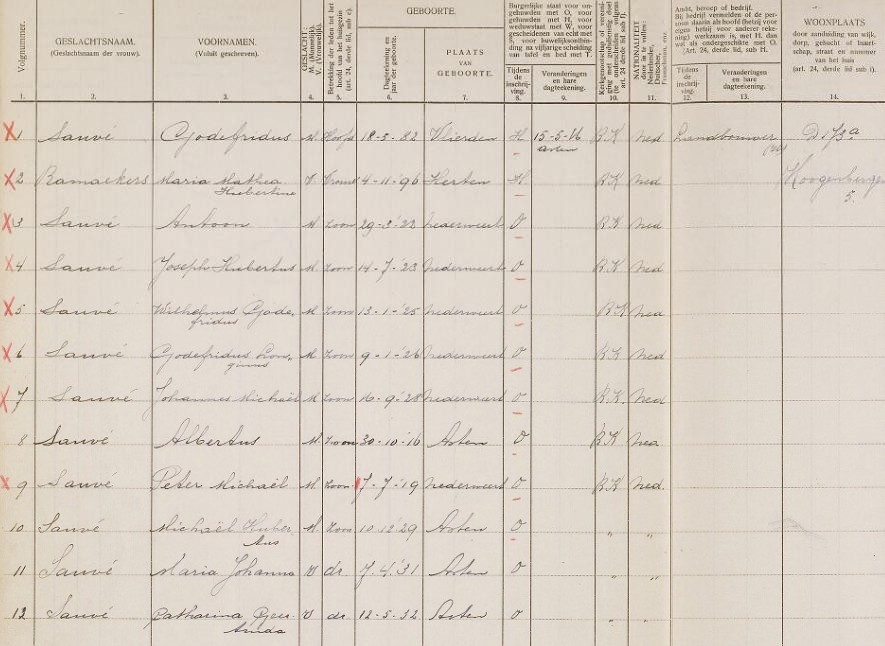 Volgnummer.
GESLACHTSNAAM.
(Geslachtsnaam der vrouw).
VOORNAMEN.
(Voluit geschreven).
GESLACHT:
M. (Mannelijk).
V. (Vrouwelijk).
Betrekking der leden tot het
hoofd van het huisgezin
(art. 24, derde lid, sub c).
GEBOORTE.
Dagteekening en
jaar der geboorte.
PLAATS
VAN
GEBOORTE.
Burgerlijke staat voor on-
gehuwden met O, voor
gehuwden met H, voor
weduwstaat met W, voor
gescheidenen van echt met
S, voor huwelijksontbin-
ding na vijfjarige scheiding
van tafel en bed met T.
Tijdens
de
inschrij-
ving.
Veranderingen
en hare
dagteekening.
NATIONALITEIT
WOONPLAATS
door aanduiding van wijk,
dorp, gehucht of buurt-
schap, straat en nummer
van het huis
(art. 24, derde lid sub i).
Ambt, beroep of bedrijf.
Bij bedrijf vermelden of de per-
soon daarin als hoofd (hetzij voor
eigen hetzij voor anderer reke-
ning) werkzaam is, met H. dan
wel als ondergeschikte met O.
(Art. 24, derde lid, sub H.
Tijdens
de
inschrij-
ving.
Veranderingen
en hare
dagteekening.
1. 2. 3. 4. 5. 6. 7. 8. 9. 10. 11. 12. 13. 14.
1 Sauvé Godefridus M Hoofd 18-5-82 Vlierden H 15-5-16 R.K Ned Landbouwer D 173a
Asten
2 Ramaekers Maria Mathea V. Vrouw 4-11-'96 Herten H R.K Ned
Hubertine
5.
3 Sauvé Antoon M Zoon 29-3-'22 Nederweert O R.K Ned
4 Sauvé Joseph Hubertus M. Zoon 14-7-'23 Nederweert O R.K Ned
5 Sauvé Wilhelmus Gode M Zoon 13-1-'25 Nederweert O R.K Ned
fridus
6 Sauvé Godefridus Lon- M Zoon 9-1-'26 Nederweert O R.K Ned
ginus
7 Sauvé Johannes Michaël M Zoon 16-9-'28 Nederweert O R.K. Ned
8 Sauvé Albertus M. Zoon 30-10-'16 Asten O R.K Ned
9 Sauvé Peter Michaël M. Zoon 7-7-'19 Nederweert O R.K Ned.
10 Sauvé Michaël Huber M. Zoon 10-12'29 Asten O " "
tus
11 Sauvé Maria Johanna V dr. 7-4-'31 Asten O " "
12 Sauvé Catharina Geer V dr 12-5-'32 Asten O " "
truida